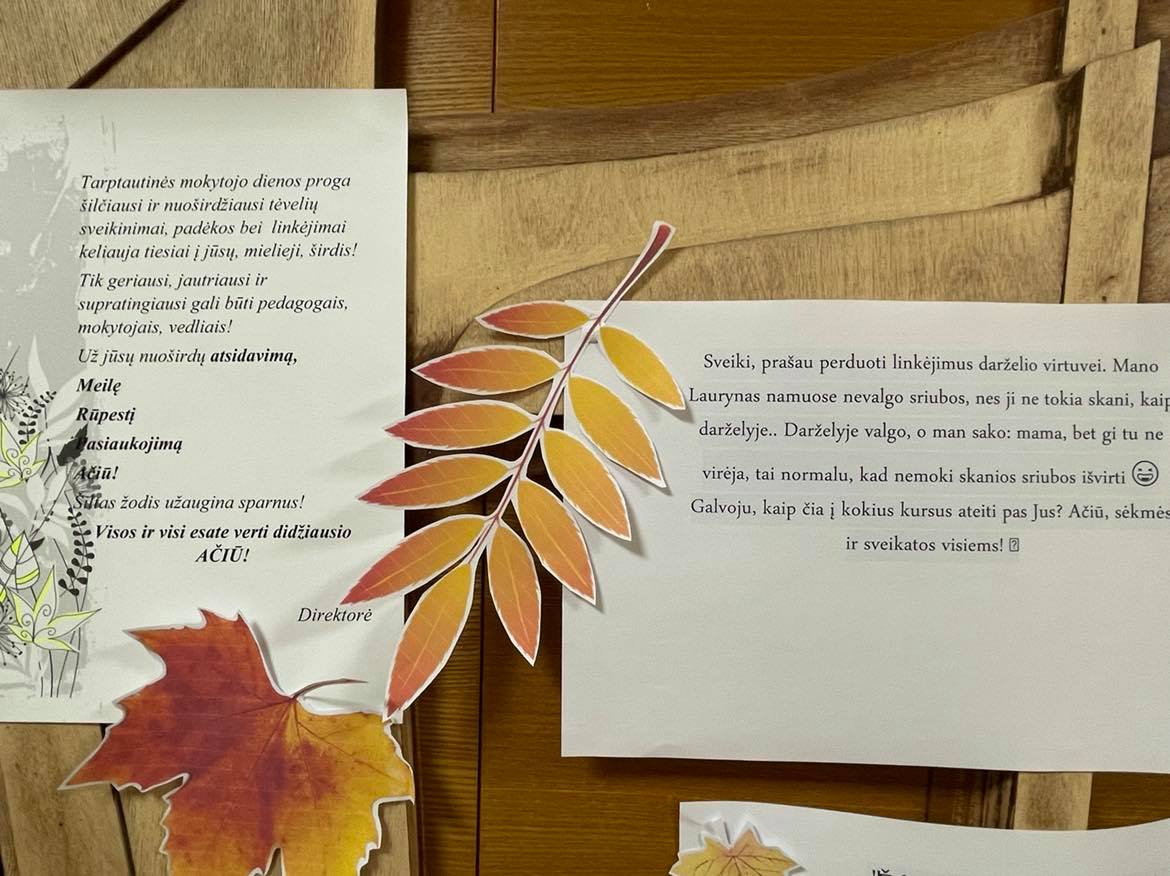 Tarptautinės mokytojo dienos proga
šilčiausi ir nuoširdžiausi tėvelių
sveikinimai, padėkos bei linkėjimai
keliauja tiesiai į jūsų, mielieji, širdis!
Tik geriausi, jautriausi ir
supratingiausi gali būti pedagogais,
mokytojais, vedliais!
Už jūsų nuoširdų atsidavimą,
Meilę
Rūpestį
Pasiaukojimą
Ačiū!
Šiltas žodis užaugina sparnus!
Visos ir visi esate verti didžiausio
AČIŪ!
Direktorė
Sveiki, prašau perduoti linkėjimus darželio virtuvei. Mano
Laurynas namuose nevalgo sriubos, nes ji ne tokia skani, kaip
darželyje.. Darželyje valgo, o man sako: mama, bet gi tu ne
virėja, tai normalu, kad nemoki skanios sriubos išvirti 😄
Galvoju, kaip čia į kokius kursus ateiti pas Jus? Ačiū, sėkmės
ir sveikatos visiems!